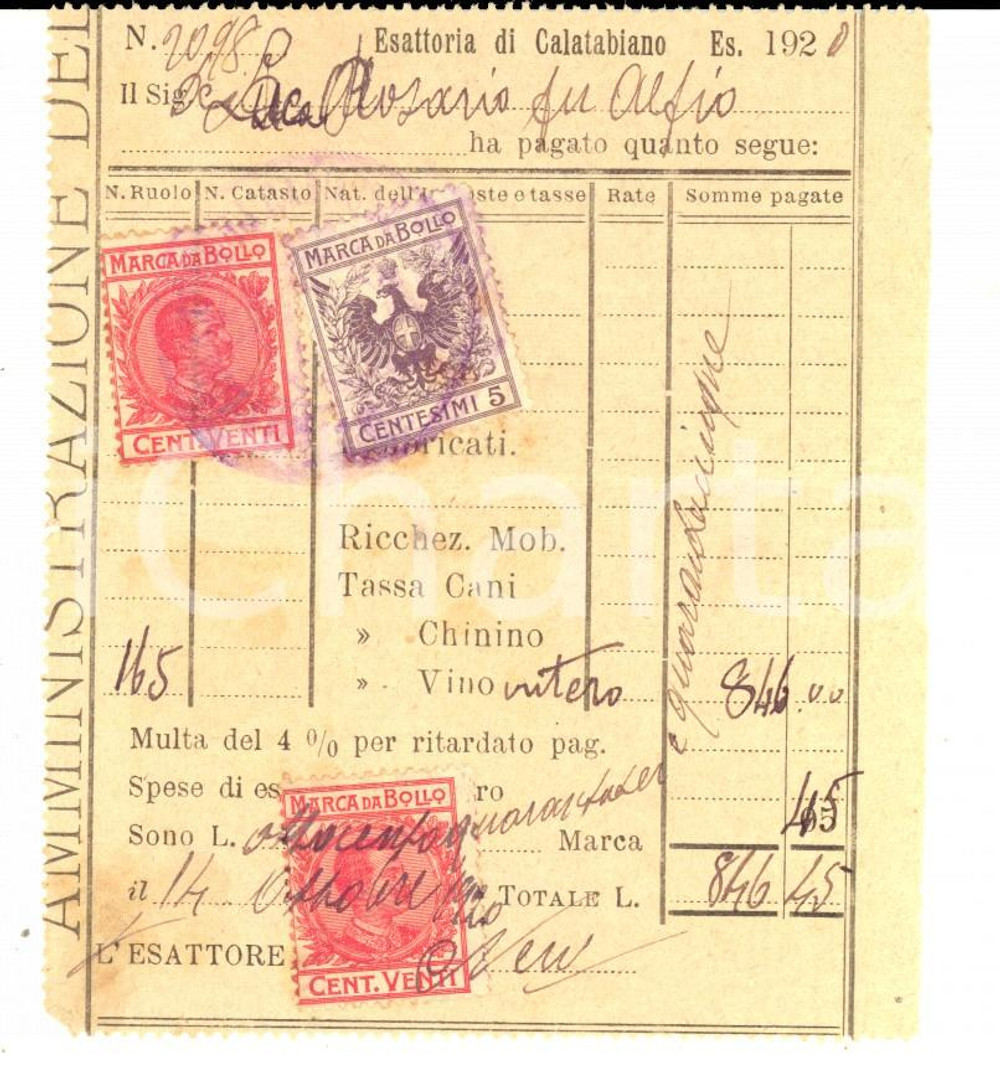 AMMINISTRAZIONE DEL
N. 2098 Esattoria di Calatabiano Es. 1920
Il Sig. Rosario fu Alfio
ha pagato quanto segue:
N. Ruolo N. Catasto Nat. dell'I oste e tasse Rate Somme pagate
MARCA DA BOLLO
CENT. VENTI
MARCA DA BOLLO
CENTESIMI 5
bricati.
Ricchez. Mob.
Tassa Cani
» Chinino
165 » Vino intero 846.00
e quarantacinque
Multa del 4 % per ritardato pag.
Spese di es ro
MARCA DA BOLLO
45
Sono L. ottocentoquarantasei Marca
il 14 Ottobre 1920 TOTALE L. 846 45
L'ESATTORE
CENT. VENTI
Charta